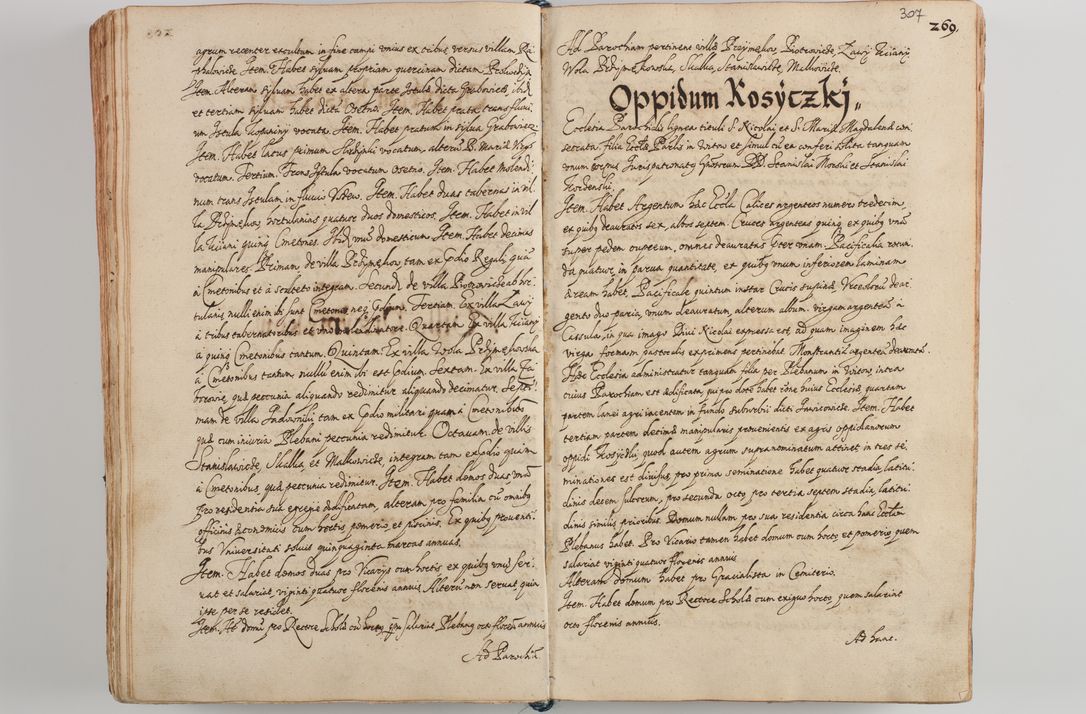 agrum recenter excultum in fine campi unius ex tribus versus villam
Item. Habet sylvam propriam quercinam dictam
Item. Alteram sylvam habet ex altera parte Istulæ dictā Grabowiec, ibid
et tertiam sylvam habet dictā Osetno. Item. Habet prata trans fluvi
um Istula Kopaniny vocata. Item. Habet pratum in sylva Grabowiecz.
Item. Habet lacus primum vocatum, alterū B. Mariæ Virgs
vocatum. Tertium. Trans Istulā vocatum Osetno. Item. Habet molendi
num trans Istulam in fluvio Item. Habet duas tabernas in vil
la hortulanios quatuor duos domesticos. Item. Habet in vil
la quinq Cmetones. Ibid. unū domesticum. Item. Habet decimas
manipulares. Primam de villa tam ex prædio Regali, quā
à Cmetonibus et à sculteto integram. Secundā de villa Piotrowice ab hor
tulanis nulli enim ibi sunt Cmetones neq Tertiam. Ex villa Zawij
à tribus tabernatoribus et uno Quartam. Ex villa
à quinq Cmetonibus tantum. Quintam. Ex villa Wola
à Cmetonibus tantum nullū enim ibi est prædium. Sextam. Ex villa
quæ pecunia aliquando redimitur aliquando decimatur. Septi
mam de villa tam ex prædio militari quam à Cmetonibus
quæ cum iniuria Plebani pecunia redimitur. Octavam. de villis
Stanislawice, Skalka, et Malkowice, integram tam ex prædio quam
à Cmetonibus, quæ pecunia redimitur. Item. Habet domos duas unā
pro residentia sua egregiè ædificatam, alteram pro familia cū omnibq
officinis œconomicis cum hortis, pomerio, et piscinis. Ex quibq proventi
bus Universitati solvit quinquaginta marcas annuas.
Item. Habet domos duas pro Vicarijs cum hortis ex quibq unū ser
vat et salariat, viginti quatuor florenis annuis. Alterū non servat, quia
ipse per se residet.
Item. Ht domū pro Rectore Scholæ cū horto, salariat Plebanq octo florenis annuis
Ad Parochiā.
307
269.
Ad Parochiam pertinent villæ Piotrowice, Zawij
Wola Skalka, Stanislawice, Malkowice.
Oppidum Kosyczki
Ecclesia Parochialis lignea tituli S. Nicolai et S. Mariæ Magdalenæ con
secrata, filia Ecclæ Parlis in Witow et simul cū ea conferri solita tanquam
unum corpus Jurispatronatq Gnosorum DD. Stanislai Morski et Stanislai
Item. Habet Argentum hæc Eccla Calices argenteos numero tredecim,
ex quibq deauratos sex, albos septem. Cruces argenteas quinq, ex quibq unā
super pedem cupreum, omnes deauratas præter unam. Pacificalia rotun
da quatuor, in parva quantitate, ex quibq unum inferiorem laminam
æream habet, Pacificale quintum instar Crucis Urceolorū de ar
gento duo paria, unum deauratum, alterum album. Virgam argenteā à
Casula, in qua imago Divi Nicolai expressa est, ad quam imaginem hæc
virga formam pastoralis exprimens pertinebat. Monstrantiā argenteā deauratā.
Hæc Ecclesia administratur tanquam filia per Plebanum in Witow, intra
cuius Parochiam est ædificata, qui pro dote habet rōne huius Ecclesiæ, quartam
partem lanei agri iacentem in fundo suburbii dicti Item. Habet
tertiam partem decimæ manipularis provenientis ex agris oppidanorum
oppidi quod autem agrum supranominatum attinet in tres se
minationes est divisus, pro prima seminatione habet quatuor stadia, latitu
dinis decem sulcorum, pro secunda octo, pro tertia septem stadia, latitu
dinis similis prioribus. Domum nullam pro sua residentia circa hanc Eccliam
Plebanus habet. Pro Vicario tamen habet domum cum horto, et pomerio, quem
salariat viginti quatuor florenis annuis.
Alteram domum habet pro Gracialista in Cœmiterio.
Item. Habet domum pro Rectore Scholæ cum exiguo horto, quem salariat
octo florenis annuis.
Ad hanc.